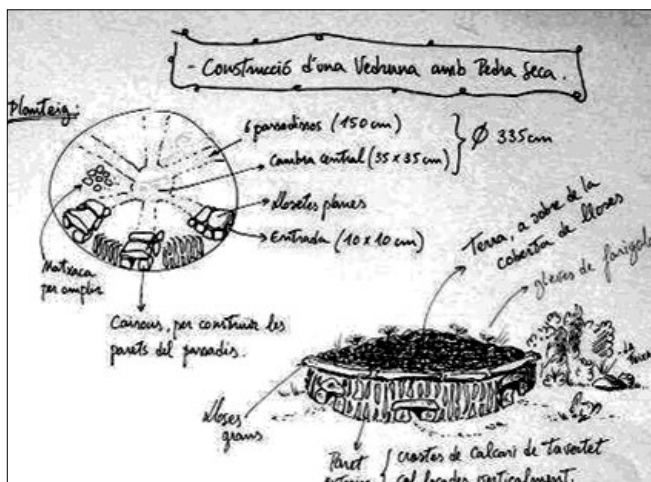 - Construcció d'una Vedruna amb Pedra Seca.
Planteig:
6 passadissos (150 cm)
Cambra central (35 x 35 cm)
Ø 335 cm
Llosetes planes
Entrada (10 x 10 cm)
Matxaca
per omplir
Cairous, per construir les
parets del passadís.
Terra, a sobre de la
coberta de lloses
gleves de farigola
Lloses
grans
Paret
crostes de calcari de tavertet
col·locades verticalment.